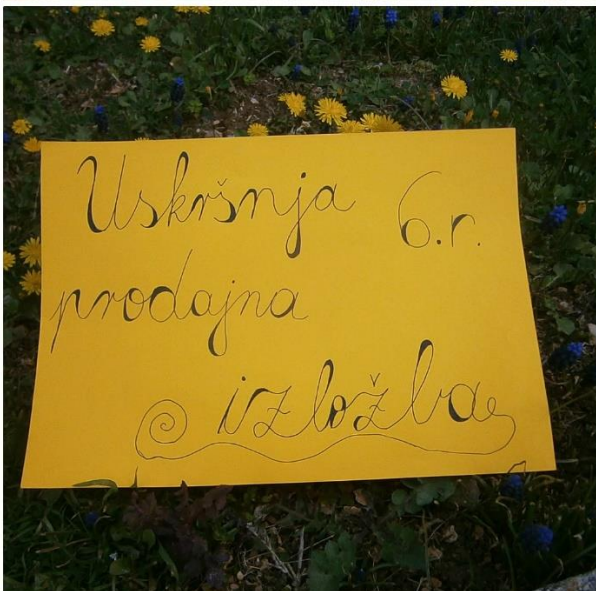 Uskršnja 6.r.
prodajna
izložba